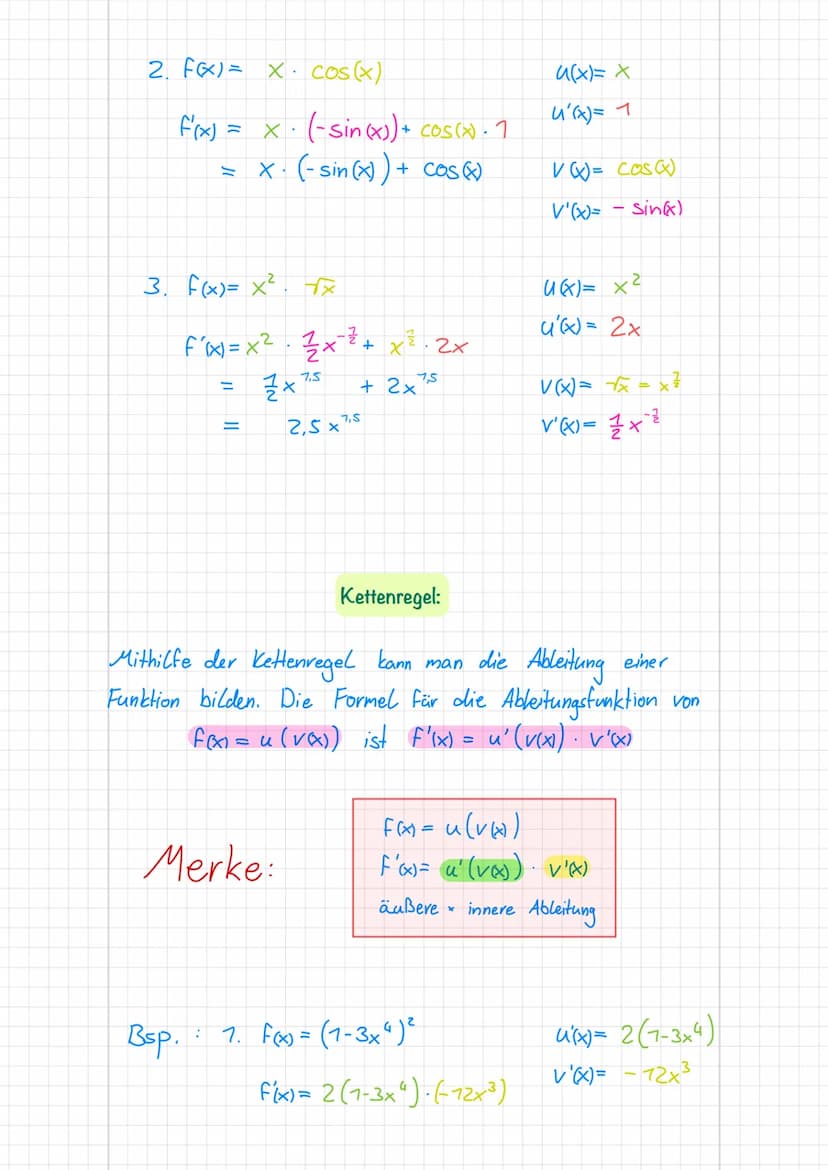 2. f(x) = x · cos(x)
u(x) = x
u'(x) = 1
f'(x) = x · (-sin(x)) + cos(x) · 1
= x · (-sin(x)) + cos(x)
v(x) = cos(x)
v'(x) = - sin(x)
3. f(x) = x² · √x
u(x) = x²
u'(x) = 2x
f'(x) = x² · 1/2 x^(-1/2) + x^(1/2) · 2x
= 1/2 x^1,5 + 2x^1,5
v(x) = √x = x^(1/2)
= 2,5 x^1,5
v'(x) = 1/2 x^(-1/2)
Kettenregel:
Mithilfe der Kettenregel kann man die Ableitung einer
Funktion bilden. Die Formel für die Ableitungsfunktion von
f(x) = u(v(x)) ist f'(x) = u'(v(x) · v'(x)
Merke:
f(x) = u(v(x)
f'(x) = u'(v(x)) · v'(x)
äußere × innere Ableitung
Bsp. : 1. f(x) = (1-3x⁴)²
u'(x) = 2(1-3x⁴)
v'(x) = - 12x³
f'(x) = 2(1-3x⁴) · (-12x³)